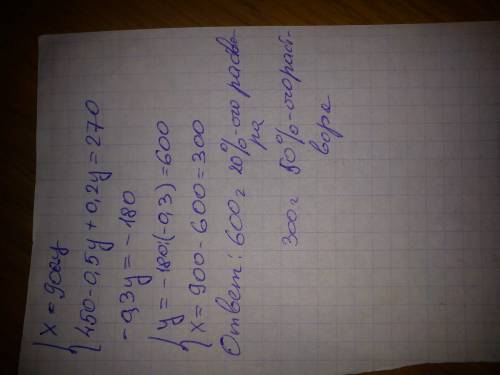 x = 900-y
450-0,5y + 0,2y = 270
-0,3y = -180
y = -180:(-0,3) = 600
x = 900-600 = 300
Ответ: 600г 20%-ого раство-
ра
300г 50%-ого раст-
вора